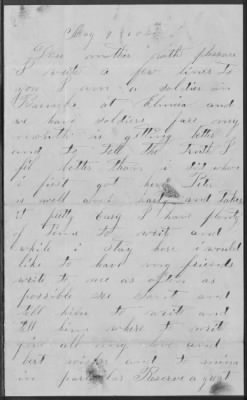 May 9 186
Dear mother with pleasure
I write a few lines to
you I am a soldier in
Barracks at Elmira and
we have soldiers fare my
mouth is getting better
and to tell the truth I
fel better than i did when
i first got here Pete
is well and and takes
it prety easy I have plenty
of time to writ and
while i stay here i would
like to have my friends
write to me as often as
possible and
tell him to writ and
tell him where to writ
give all my love and
best wishes and to
in particular Reserve a great